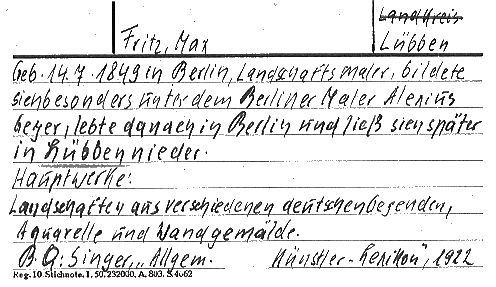 Landkreis
Fritz, Max
Lübben
Geb. 14.7.1849 in Berlin, Landschaftsmaler, bildete
sich besonders unter dem Berliner Maler Alexius
Geyer, lebte danach in Berlin und ließ sich später
in Lübben nieder.
Hauptwerke:
Landschaften aus verschiedenen deutschen Gegenden,
Aquarelle und Wandgemälde.
B.Q: Singer, „Allgem. Künstler-Lexikon", 1922
Reg. 10. Stichnote. 1. 50. 232000, A. 803. S 4662